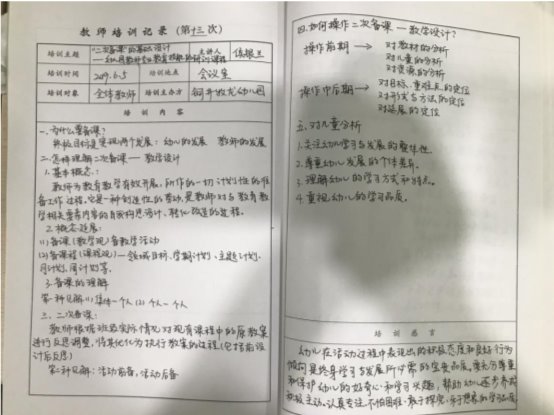 教师培训记录（第十三次）
培训主题
"二次备课"的基础设计
主讲人
培训时间
2019.6.5
培训地点
会议室
培训对象
全体教师
培训主办方
幼儿园
培训内容
一、为什么要备课？
终极目标是实现两个发展：幼儿的发展 教师的发展
二、怎样理解二次备课——教学设计
1.基本概念：
教师为教育教学有效开展，所作的一切计划性的准
备工作过程，它是一种创造性的劳动，是教师对与教育教
学相关要素内容的自我构思设计、转化改造的过程。
2.概念延展：
(1)备课(教学观)备教学活动
(2)备课程(课程观)一领域目标、学期计划、主题计划、
月计划、周计划等。
3.备课的理解
第一种见解：(1)集体一个人 (2)个人一个人
三、二次备课：
教师根据班级实际情况对现有课程中的原教案
进行反思调整，将其优化为执行教案的过程(包括前设
计后反思)
第二种见解：活动前备，活动后备
四.如何操作二次备课一教学设计？
操作前期→对教材的分析
对儿童的分析
对资源的分析
操作中后期→对目标、重难点的定位
对形式与方法的定位
对延展的定位
五.对儿童分析
1.关注幼儿学习与发展的整体性.
2.尊重幼儿发展的个体差异.
3.理解幼儿的学习方式和特点。
4.重视幼儿的学习品质。
培训感言
幼儿在活动过程中表现出的积极态度和良好行为
倾向是终身学习与发展所必需的宝贵品质。要充分尊重
和保护幼儿的好奇心和学习兴趣，帮助幼儿逐步养成
积极主动、认真专注、不怕困难、敢于探究、乐于想象的学习品质